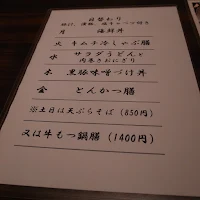 日替わり
月 海鮮丼
火 キムチ冷しゃぶ膳
水 サラダうどんと
肉巻きおにぎり
木 黒豚味噌づけ丼
金 とんかつ膳
※土日は天ぷらそば(850円)
又は牛もつ鍋膳(1400円)